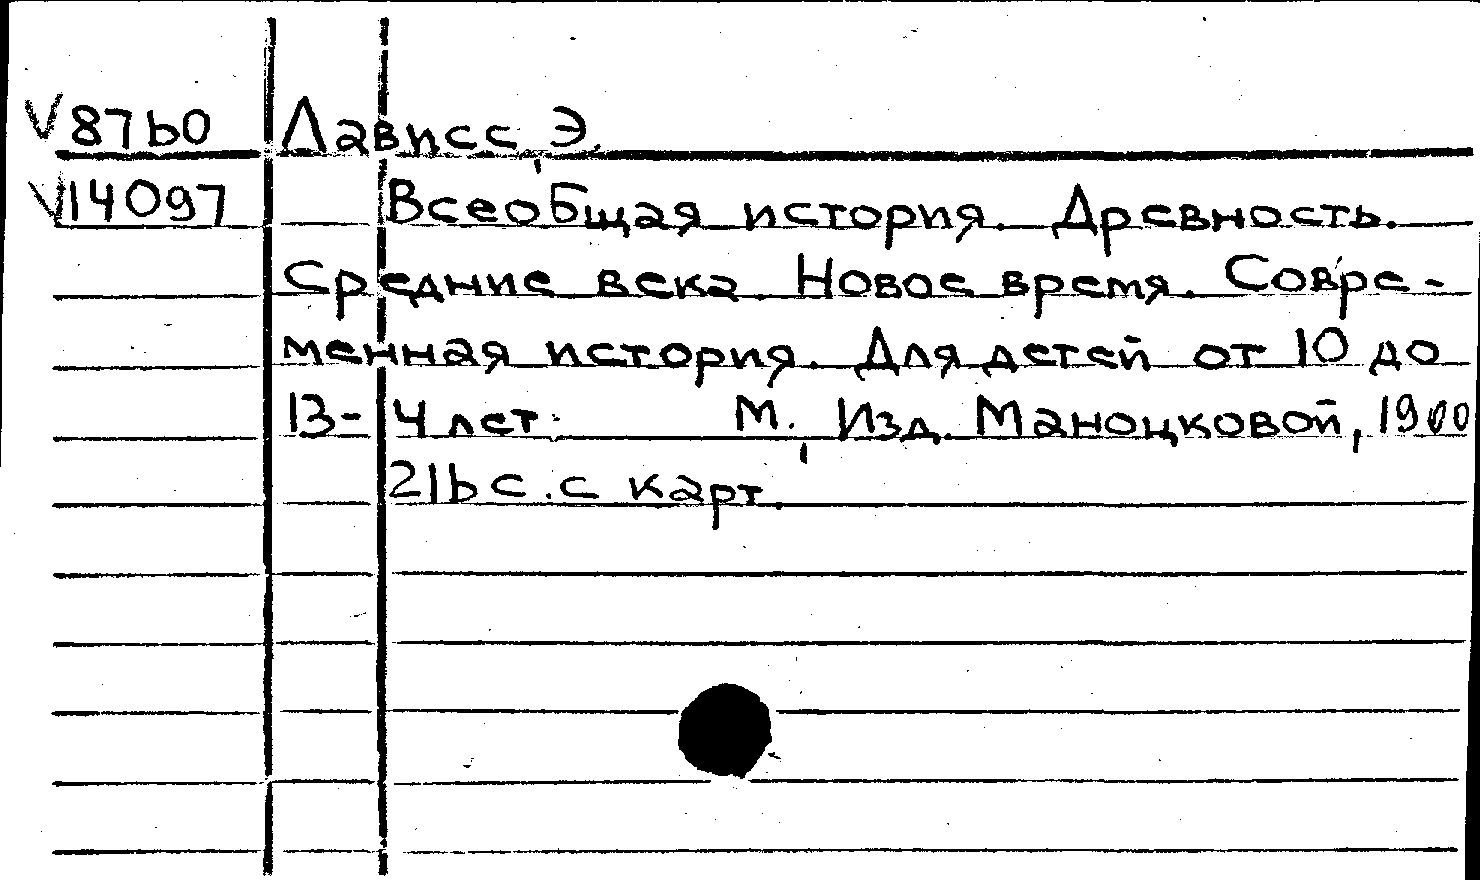 V 8760 Лависс, Э.
V 14097 Всеобщая история. Древность.
Средние века. Новое время. Совре-
менная история. Для детей от 10 до
13-4 лет. М., Изд. Маноцковой, 1900
216 с. с карт.